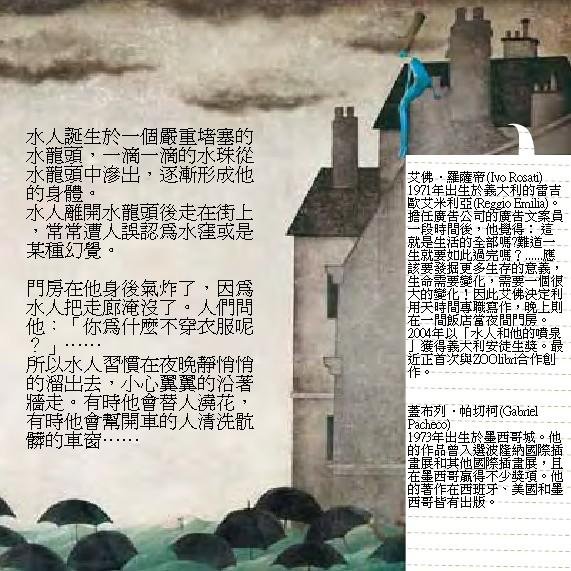 水人誕生於一個嚴重堵塞的
水龍頭，一滴一滴的水珠從
水龍頭中滲出，逐漸形成他
的身體。
水人離開水龍頭後走在街上
，常常遭人誤認爲水窪或是
某種幻覺。
門房在他身後氣炸了，因爲
水人把走廊淹沒了。人們問
他：「你爲什麼不穿衣服呢
？」……
所以水人習慣在夜晚靜悄悄
的溜出去，小心翼翼的沿著
牆走。有時他會替人澆花，
有時他會幫開車的人清洗骯
髒的車窗……
艾佛·羅薩帝(Ivo Rosati)
1971年出生於義大利的雷吉
歐艾米利亞(Reggio Emilia)。
擔任廣告公司的廣告文案員
一段時間後，他覺得： 這
就是生活的全部嗎?難道一
生就要如此過完嗎？……應
該要發掘更多生存的意義，
生命需要變化，需要一個很
大的變化！因此艾佛決定利
用天時間專職寫作，晚上則
在一間飯店當夜間門房。
2004年以「水人和他的噴泉
」獲得義大利安徒生獎。最
近正首次與ZOOlibri合作創
作。
蓋布列·帕切柯(Gabriel
Pacheco)
1973年出生於墨西哥城。他
的作品曾入選波隆納國際插
畫展和其他國際插畫展，且
在墨西哥贏得不少獎項。他
的著作在西班牙、美國和墨
西哥皆有出版。